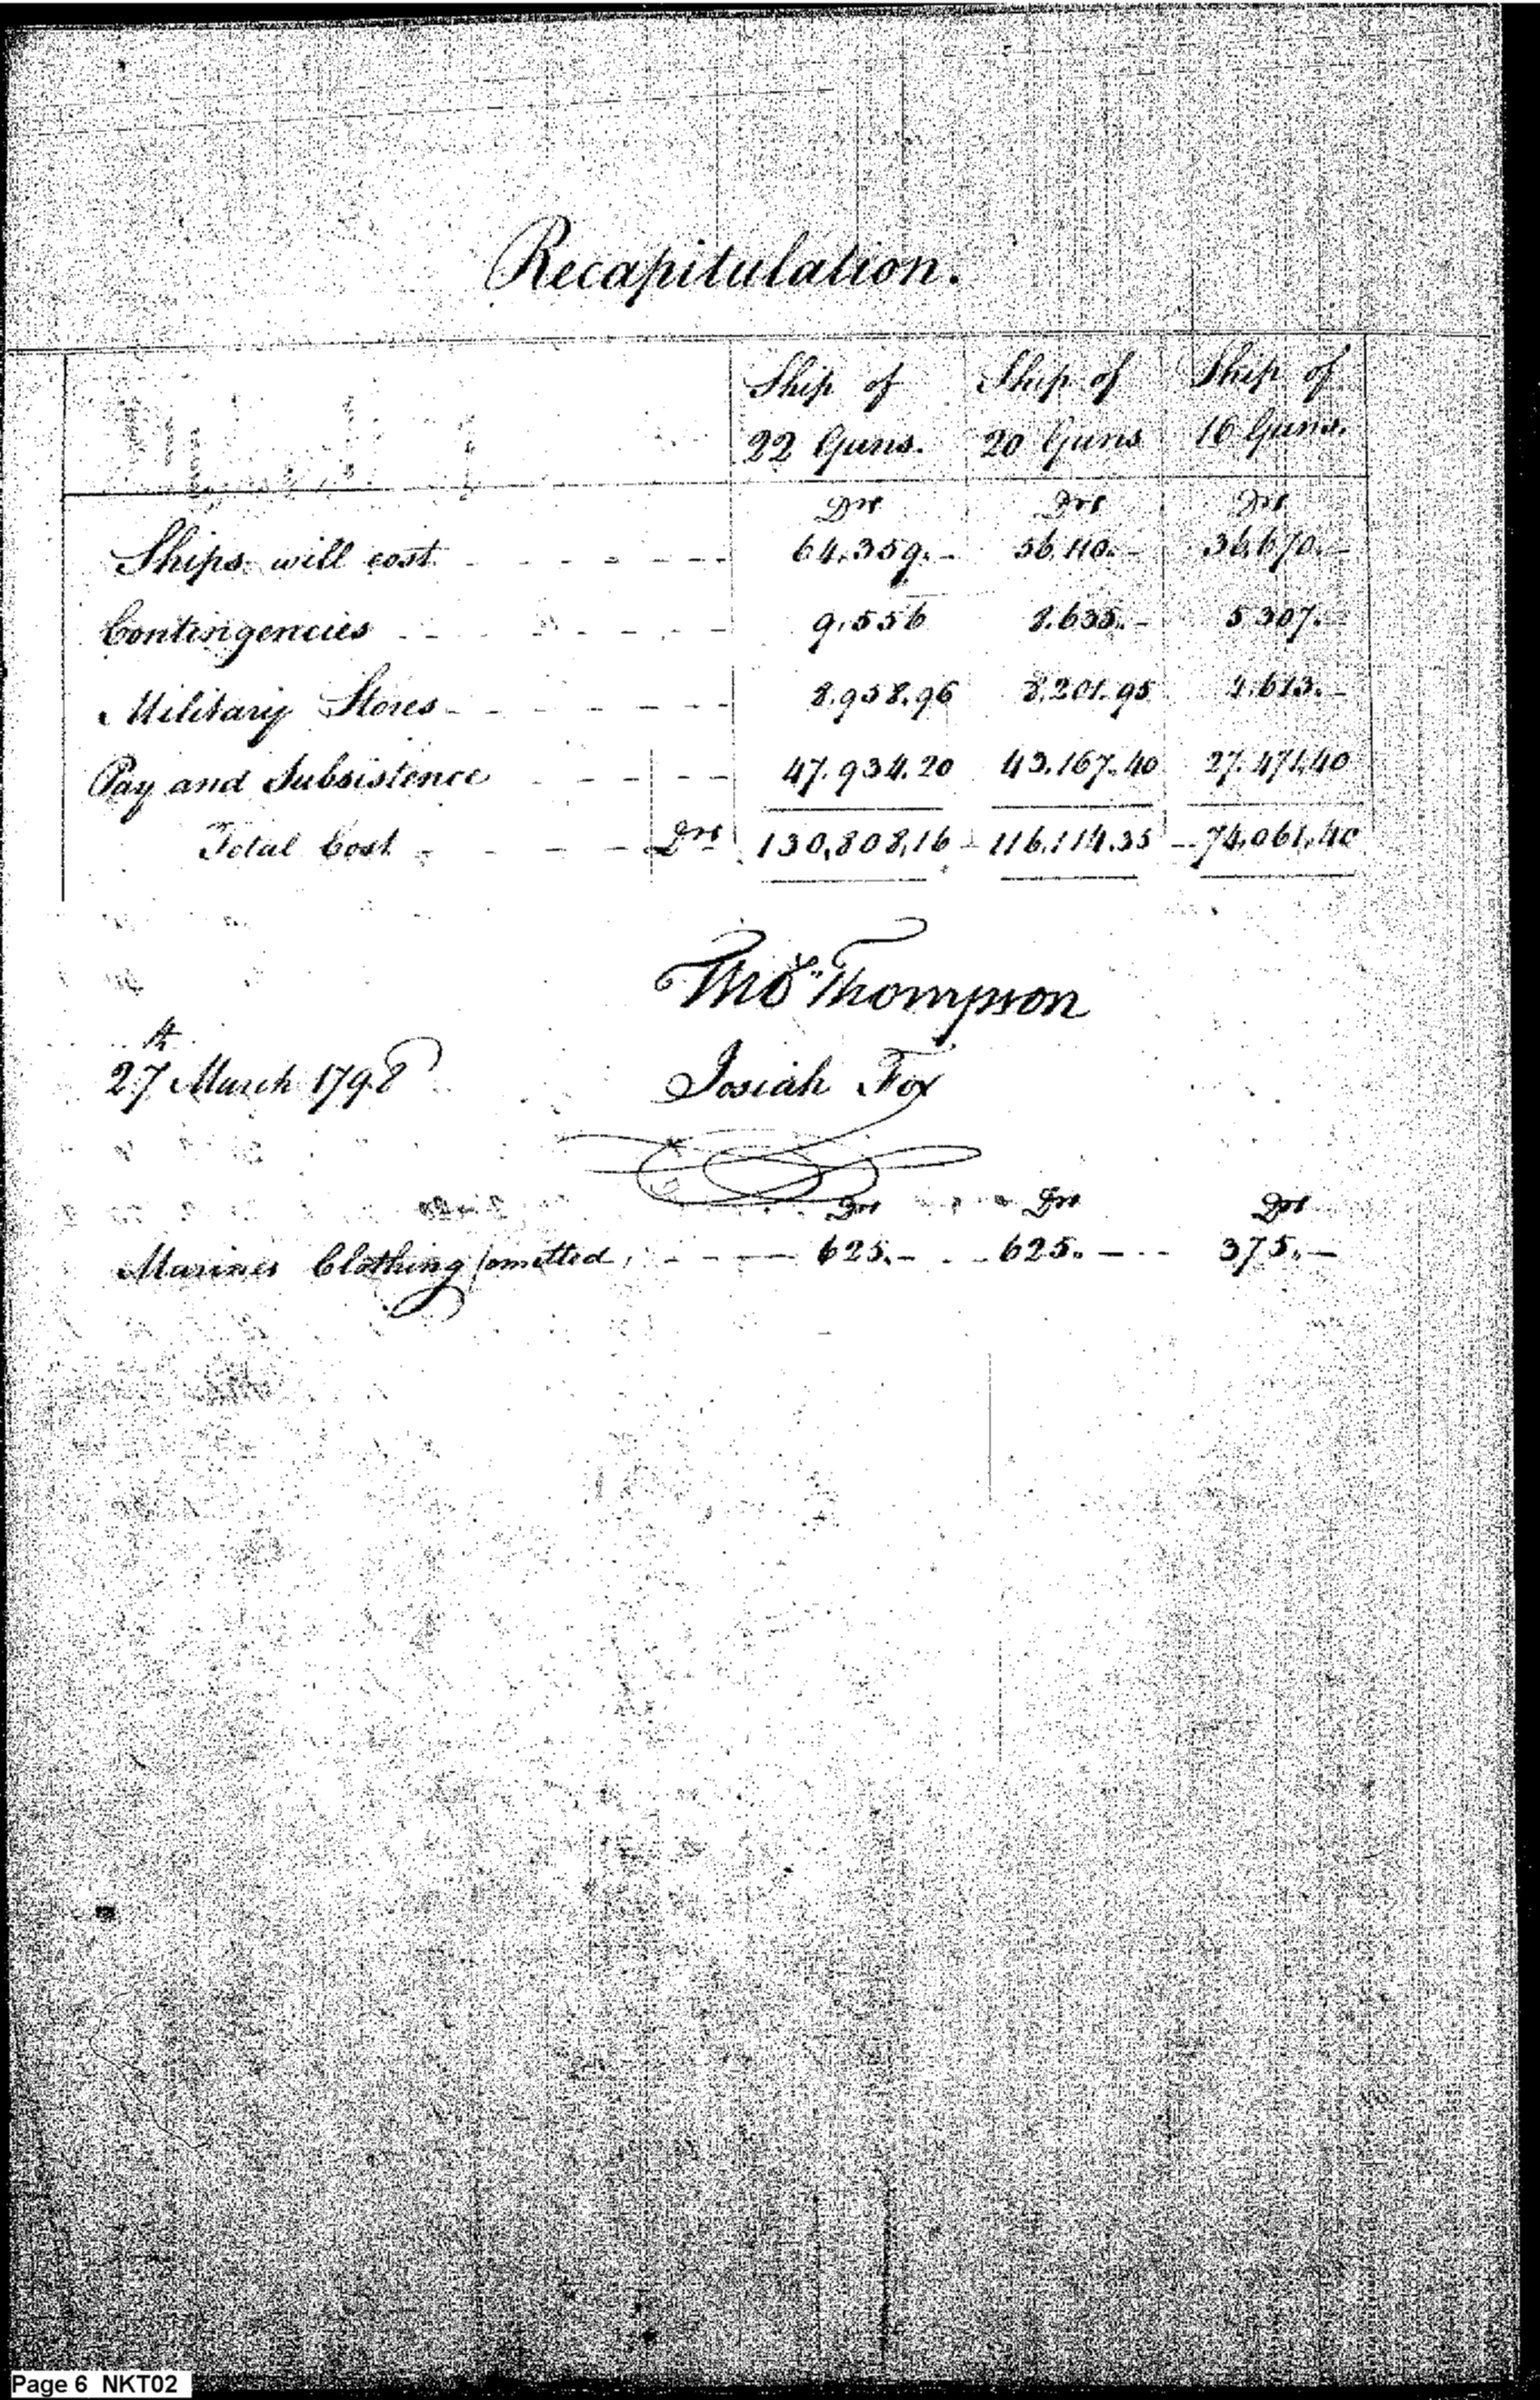 Recapitulation.
Ship of Ship of Ship of
22 Guns. 20 Guns 16 Guns.
Drs Drs Drs
Ships will cost - - - - - - - 64.359.- 56.110.- 36.670.-
Contingencies - - - - - - - 9.556 8.635.- 5.307.-
Military Stores - - - - - - - 8.958.96 8.201.95 4.613.-
Pay and Subsistence - - - - - 47.934.20 43.167.40 27.471.40
Total Cost - - - - - Drs 130,808,16 - 116.114.35 - 74,061,40
Thos Thompson
27th March 1798 Josiah Fox
Drs Drs Drs
Marines Clothing /omitted, - - - - 625.- - - 625.- - - 375.-
Page 6 NKT02